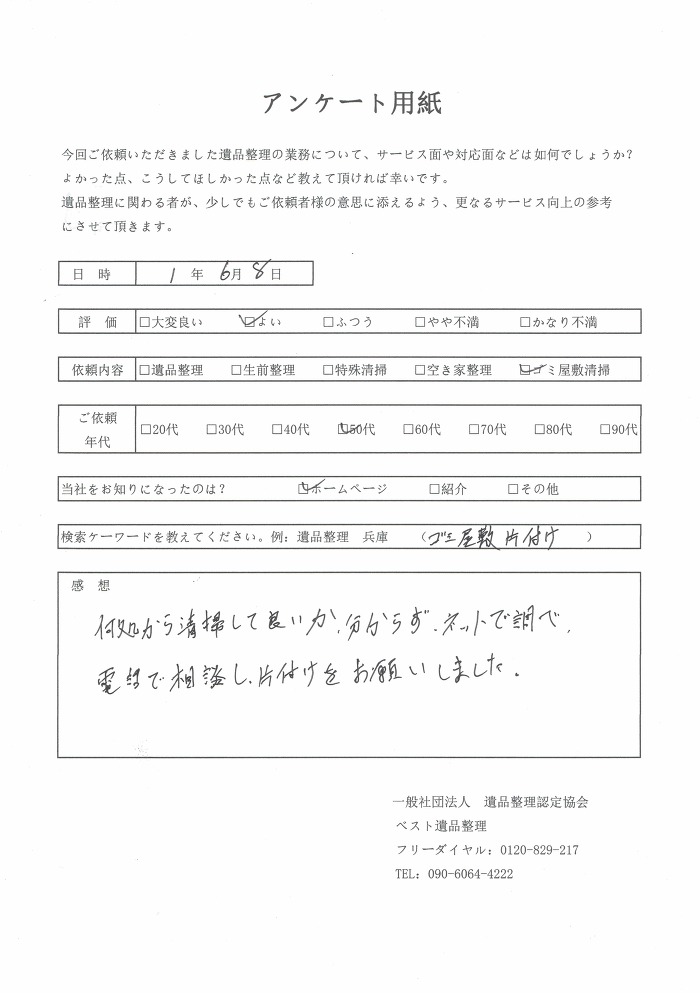 アンケート用紙
今回ご依頼いただきました遺品整理の業務について、サービス面や対応面などは如何でしょうか?
よかった点、こうしてほしかった点など教えて頂ければ幸いです。
遺品整理に関わる者が、少しでもご依頼者様の意思に添えるよう、更なるサービス向上の参考
にさせて頂きます。
日 時 1 年 6月 8日
評 価 □大変良い ☑よい □ふつう □やや不満 □かなり不満
依頼内容 □遺品整理 □生前整理 □特殊清掃 □空き家整理 ☑ゴミ屋敷清掃
ご依頼
年代 □20代 □30代 □40代 ☑50代 □60代 □70代 □80代 □90代
当社をお知りになったのは? ☑ホームページ □紹介 □その他
検索ケーワードを教えてください。例: 遺品整理 兵庫 (ゴミ屋敷 片付け )
感 想
何処から清掃して良いか、分からず、ネットで調べ、
電話で相談し、片付けをお願いしました。
一般社団法人 遺品整理認定協会
ベスト遺品整理
フリーダイヤル: 0120-829-217
TEL: 090-6064-4222